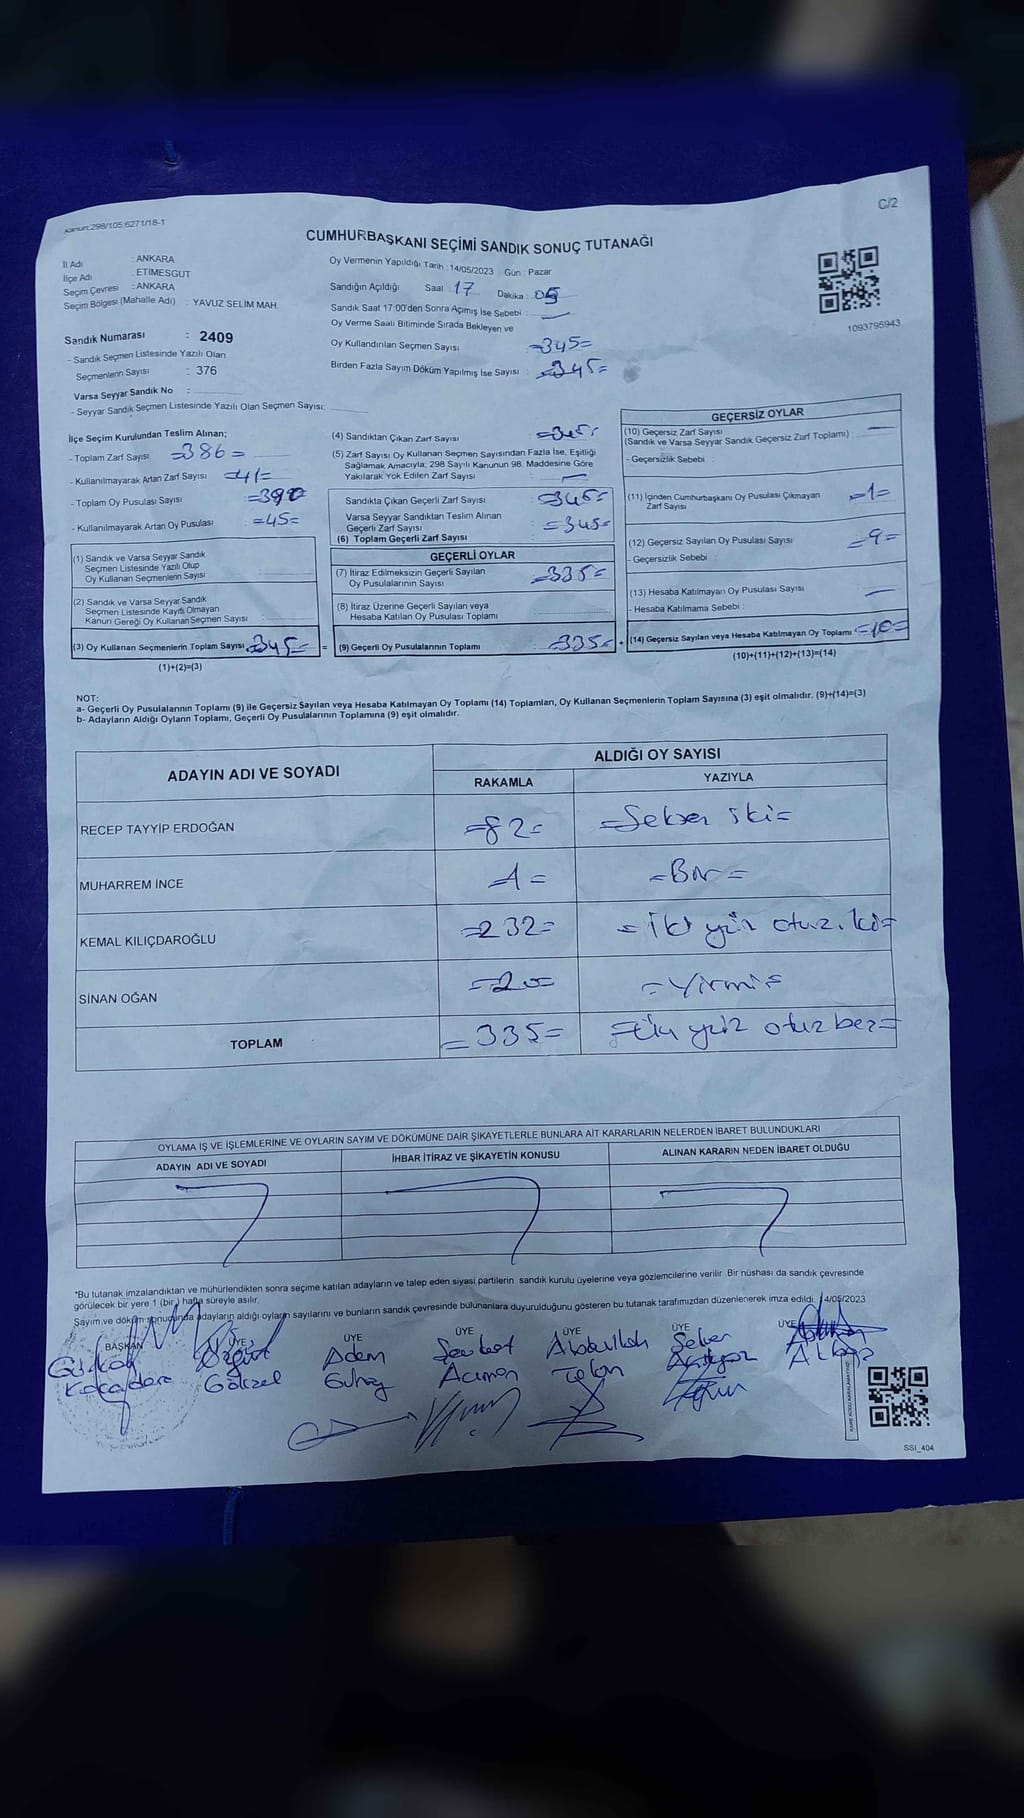 Kanun:298/105;6271/18-1
C/2
CUMHURBAŞKANI SEÇİMİ SANDIK SONUÇ TUTANAĞI
İl Adı : ANKARA
İlçe Adı : ETİMESGUT
Seçim Çevresi : ANKARA
Seçim Bölgesi (Mahalle Adı) : YAVUZ SELİM MAH.
Sandık Numarası : 2409
- Sandık Seçmen Listesinde Yazılı Olan
Seçmenlerin Sayısı : 376
Varsa Seyyar Sandık No :
- Seyyar Sandık Seçmen Listesinde Yazılı Olan Seçmen Sayısı:
Oy Vermenin Yapıldığı Tarih : 14/05/2023 Gün : Pazar
Sandığın Açıldığı Saat : 17 Dakika : 05
Sandık Saat 17:00'den Sonra Açımış İse Sebebi :
Oy Verme Saati Bitiminde Sırada Bekleyen ve
Oy Kullandırılan Seçmen Sayısı =345=
Birden Fazla Sayım Döküm Yapılmış İse Sayısı : =345=
1093795943
İlçe Seçim Kurulundan Teslim Alınan;
- Toplam Zarf Sayısı =386=
- Kullanılmayarak Artan Zarf Sayısı =41=
- Toplam Oy Pusulası Sayısı =390=
- Kullanılmayarak Artan Oy Pusulası =45=
(1) Sandık ve Varsa Seyyar Sandık
Seçmen Listesinde Yazılı Olup
Oy Kullanan Seçmenlerin Sayısı
(2) Sandık ve Varsa Seyyar Sandık
Seçmen Listesinde Kayıtlı Olmayan
Kanun Gereği Oy Kullanan Seçmen Sayısı
(3) Oy Kullanan Seçmenlerin Toplam Sayısı =345=
(1)+(2)=(3)
(4) Sandıktan Çıkan Zarf Sayısı =345=
(5) Zarf Sayısı Oy Kullanan Seçmen Sayısından Fazla İse, Eşitliği
Sağlamak Amacıyla; 298 Sayılı Kanunun 98. Maddesine Göre
Yakılarak Yok Edilen Zarf Sayısı
Sandıkta Çıkan Geçerli Zarf Sayısı =345=
Varsa Seyyar Sandıktan Teslim Alınan
Geçerli Zarf Sayısı =345=
(6) Toplam Geçerli Zarf Sayısı
GEÇERLİ OYLAR
(7) İtiraz Edilmeksizin Geçerli Sayılan
Oy Pusulalarının Sayısı =335=
(8) İtiraz Üzerine Geçerli Sayılan veya
Hesaba Katılan Oy Pusulası Toplamı
= (9) Geçerli Oy Pusulalarının Toplamı =335= +
GEÇERSİZ OYLAR
(10) Geçersiz Zarf Sayısı
(Sandık ve Varsa Seyyar Sandık Geçersiz Zarf Toplamı)
- Geçersizlik Sebebi :
(11) İçinden Cumhurbaşkanı Oy Pusulası Çıkmayan
Zarf Sayısı =1=
(12) Geçersiz Sayılan Oy Pusulası Sayısı =9=
- Geçersizlik Sebebi :
(13) Hesaba Katılmayan Oy Pusulası Sayısı
- Hesaba Katılmama Sebebi :
(14) Geçersiz Sayılan veya Hesaba Katılmayan Oy Toplamı =10=
(10)+(11)+(12)+(13)=(14)
NOT:
a- Geçerli Oy Pusulalarının Toplamı (9) ile Geçersiz Sayılan veya Hesaba Katılmayan Oy Toplamı (14) Toplamları, Oy Kullanan Seçmenlerin Toplam Sayısına (3) eşit olmalıdır. (9)+(14)=(3)
b- Adayların Aldığı Oyların Toplamı, Geçerli Oy Pusulalarının Toplamına (9) eşit olmalıdır.
ADAYIN ADI VE SOYADI
ALDIĞI OY SAYISI
RAKAMLA YAZIYLA
RECEP TAYYİP ERDOĞAN =82= =Seksen iki=
MUHARREM İNCE =1= =Bir=
KEMAL KILIÇDAROĞLU =232= =İki yüz otuz iki=
SİNAN OĞAN =20= =Yirmi=
TOPLAM =335= =Üç yüz otuz beş=
OYLAMA İŞ VE İŞLEMLERİNE VE OYLARIN SAYIM VE DÖKÜMÜNE DAİR ŞİKAYETLERLE BUNLARA AİT KARARLARIN NELERDEN İBARET BULUNDUKLARI
ADAYIN ADI VE SOYADI İHBAR İTİRAZ VE ŞİKAYETİN KONUSU ALINAN KARARIN NEDEN İBARET OLDUĞU
*Bu tutanak imzalandıktan ve mühürlendikten sonra seçime katılan adayların ve talep eden siyasi partilerin sandık kurulu üyelerine veya gözlemcilerine verilir. Bir nüshası da sandık çevresinde
görülecek bir yere 1 (bir) hafta süreyle asılır.
Sayım ve döküm sonucunda adayların aldığı oyların sayılarını ve bunların sandık çevresinde bulunanlara duyurulduğunu gösteren bu tutanak tarafımızdan düzenlenerek imza edildi. 14/05/2023
BAŞKAN ÜYE ÜYE ÜYE ÜYE ÜYE ÜYE
Adem Abdullah
Gökçel Günay Acıman
SSİ_404